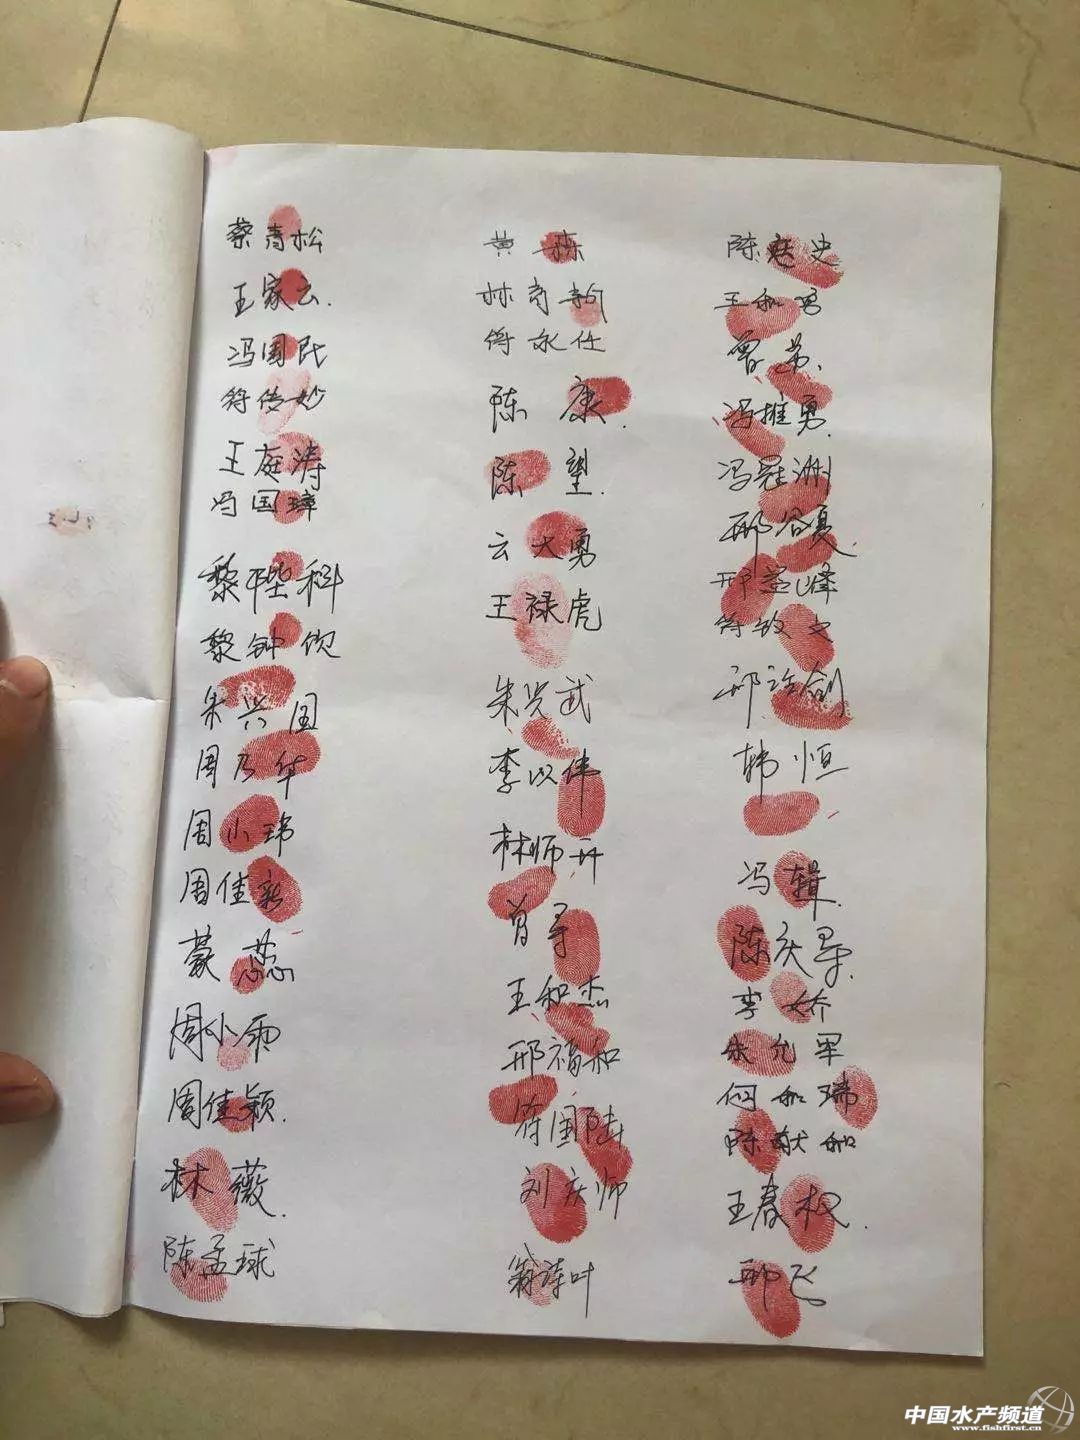 蔡青松
王家云.
冯国民
符传妙
王庭涛
冯国璋
黎陛科
黎钟饮
朱兴国
周乃华
周小玮
周佳新
蒙蕊
周小雨
周佳颖.
林薇.
陈孟球
黄栋
林育
符永仕
陈康.
陈望.
云大勇
王禄虎
朱兴武
李以伟
林师开
曾寻
王和杰
邢福和
符国陆
刘庆师
翁诗叶
陈廷史
王和勇
曾弟.
冯推勇.
冯冠洲
邢谷夏
邢益峰
符致史
邢诒剑
韩恒
冯辑.
陈庆军.
李娇
朱允军
何和瑞
陈献和
王春权.
邢飞
中国水产频道
www.fishfirst.cn